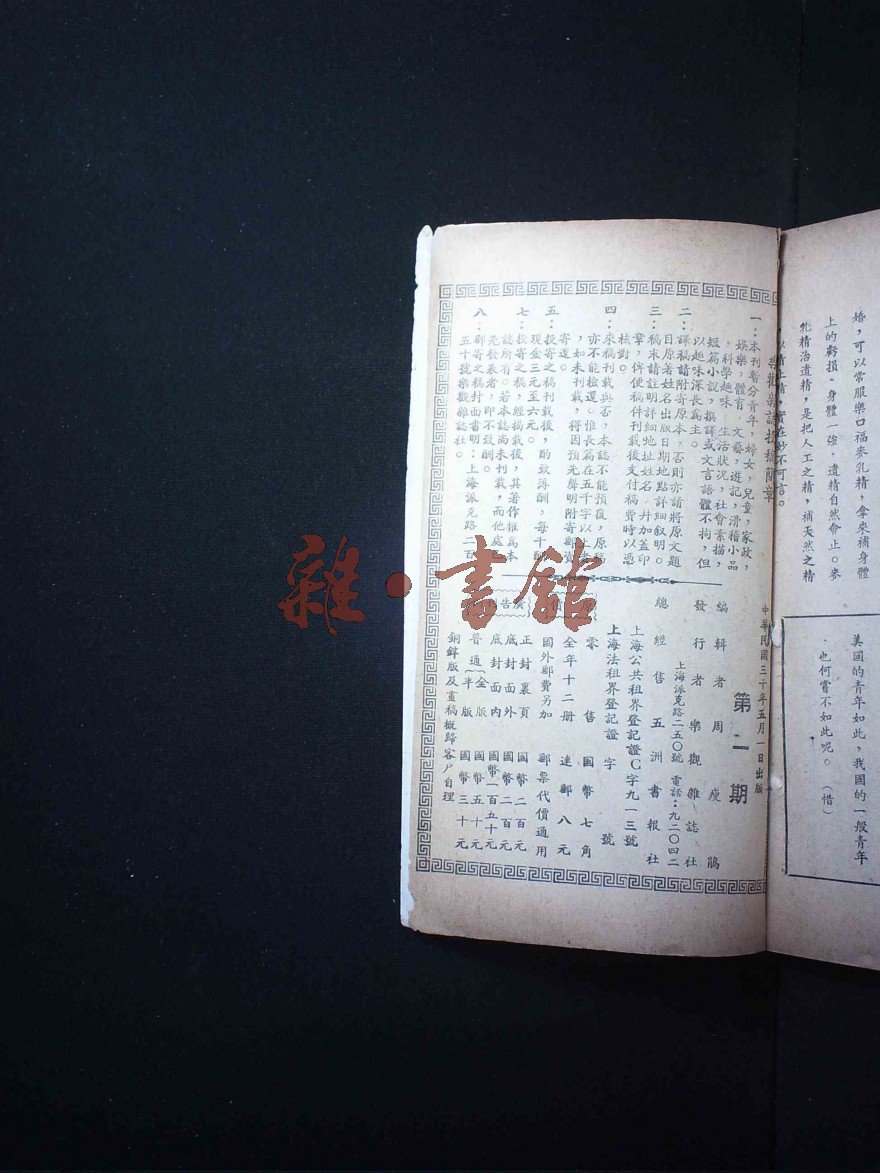 婚，可以常服樂口福麥乳精，拿來補身體
上的虧損、身體一強，遺精自然會止。麥
乳精治遺精，是把人工之精，補天然之精
，以精止精，實在妙不可言。
美國的青年如此，我國的一般青年
，也何嘗不如此呢。（惜）
樂觀雜誌投稿簡章
一：本刊暫分青年，婦女，兒童，家政，
娛樂，體育，文藝，遊記，滑稽小品
，科學趣味，生活狀況，社會素描，
短篇小說，撰譯或文言語體不拘，但
以趣味深長爲主。
二：譯稿請附寄原本，否則亦請將原文題
目原著姓名出版日期地點詳細叙明。
三：稿末請註明詳細地址姓名，并加蓋印
章，俾便稿件刊載後支付稿費時以憑
核對。
四：來稿刊載與否，本誌不能預復，原稿
亦不能檢還。惟長篇在五千字以上者
，如未刊載，得因預先聲明附寄郵資
寄還。
五：投寄之稿刊載後，酌致薄酬，每千字
現金三元至六元。
七：投寄之稿，經揭載後，其著作權爲本
誌所有。若本誌尚未刊載，而他處已
先發表者，即不致酬。
八：郵寄之稿封面書明：上海派克路二百
五十號樂觀雜誌社。
中華民國三十年五月一日出版
第一期
編輯者 周瘦鵑
發行者 樂觀雜誌社
上海派克路二五〇號 電話：九二〇四二
總經售 五洲書報社
上海公共租界登記證C字九一三號
上海法租界登記證 字 號
零售 國幣七角
全年十二册 連郵八元
國外郵費另加 郵票代價通用
廣告
正封裏頁 國幣二百元
底封面外 國幣二百元
底封面內 國幣一百五十元
普通 全版 國幣五十元
半版 國幣三十元
銅鋅版及畫稿概歸客戶自理
雜·書館